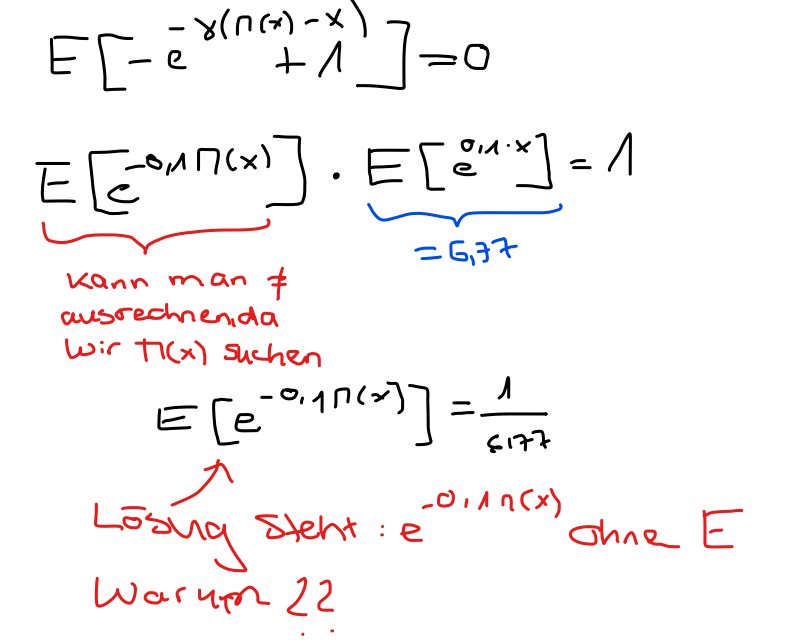 E[-e^{-γ(Π(x)-x)} + 1] = 0
E[e^{-0,1 Π(x)}] · E[e^{0,1·x}] = 1
= 6,77
kann man ≠
ausrechnen, da
wir Π(x) suchen
E[e^{-0,1 Π(x)}] = 1/6,77
Lösug steht : e^{-0,1 Π(x)} ohne E
Warum ??